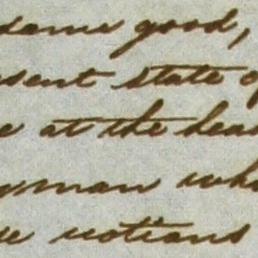 same good,
sent state of
e at the hea
yman who
se notions